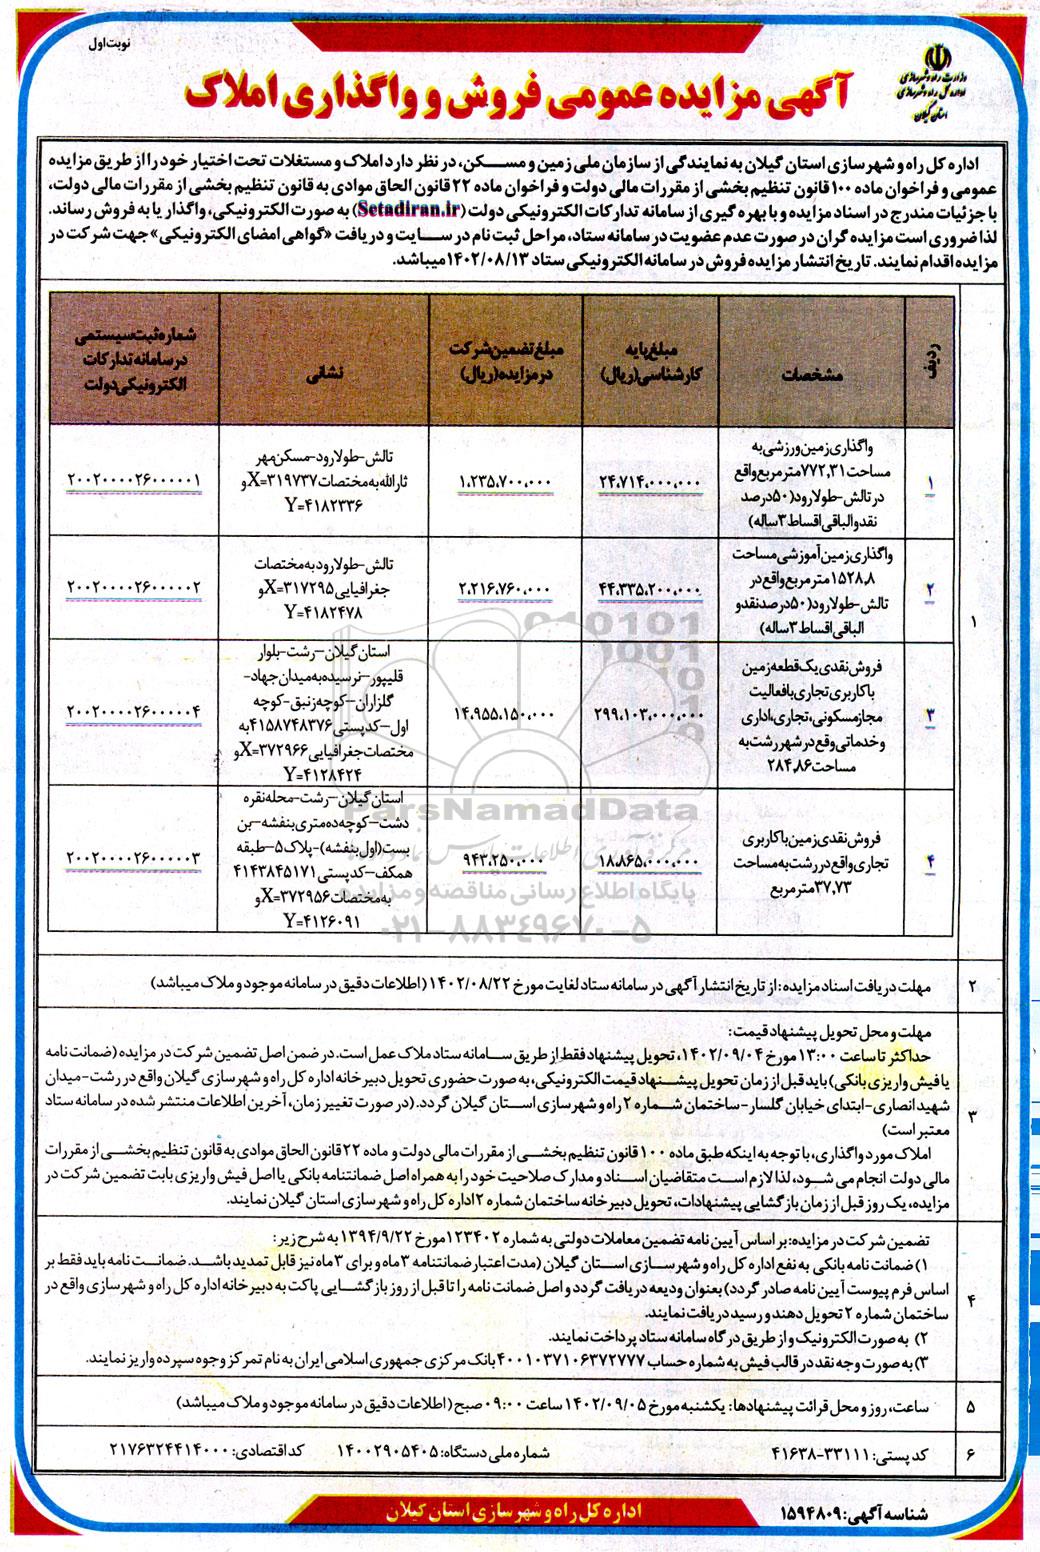 نوبت اول
وزارت راه و شهرسازی
اداره کل راه و شهرسازی
استان گیلان
آگهی مزایده عمومی فروش و واگذاری املاک
اداره کل راه و شهرسازی استان گیلان به نمایندگی از سازمان ملی زمین و مسکن، در نظر دارد املاک و مستغلات تحت اختیار خود را از طریق مزایده
عمومی و فراخوان ماده ۱۰۰ قانون تنظیم بخشی از مقررات مالی دولت و فراخوان ماده ۲۲ قانون الحاق موادی به قانون تنظیم بخشی از مقررات مالی دولت،
با جزئیات مندرج در اسناد مزایده و با بهره گیری از سامانه تدارکات الکترونیکی دولت (Setadiran.ir) به صورت الکترونیکی، واگذار یا به فروش رساند.
لذا ضروری است مزایده گران در صورت عدم عضویت در سامانه ستاد، مراحل ثبت نام در سایت و دریافت «گواهی امضای الکترونیکی» جهت شرکت در
مزایده اقدام نمایند. تاریخ انتشار مزایده فروش در سامانه الکترونیکی ستاد ۱۴۰۲/۰۸/۱۳ میباشد.
۱
ردیف
مشخصات
مبلغ پایه
کارشناسی (ریال)
مبلغ تضمین شرکت
در مزایده (ریال)
نشانی
شماره ثبت سیستمی
در سامانه تدارکات
الکترونیکی دولت
۱
واگذاری زمین ورزشی به
مساحت ۷۷۲,۳۱ مترمربع واقع
در تالش-طولارود (۵۰ درصد
نقد و الباقی اقساط ۳ ساله)
۲۴،۷۱۴،۰۰۰،۰۰۰
۱،۲۳۵،۷۰۰،۰۰۰
تالش-طولارود-مسکن مهر
ثارالله به مختصات X=۳۱۹۷۳۷ و
Y=۴۱۸۲۳۳۶
۲۰۰۲۰۰۰۰۲۶۰۰۰۰۰۱
۲
واگذاری زمین آموزشی مساحت
۱۵۲۸,۸ مترمربع واقع در
تالش-طولارود (۵۰ درصد نقد و
الباقی اقساط ۳ ساله)
۴۴،۳۳۵،۲۰۰،۰۰۰
۲،۲۱۶،۷۶۰،۰۰۰
تالش-طولارود به مختصات
جغرافیایی X=۳۱۷۲۹۵ و
Y=۴۱۸۲۴۷۸
۲۰۰۲۰۰۰۰۲۶۰۰۰۰۰۲
۳
فروش نقدی یک قطعه زمین
با کاربری تجاری با فعالیت
مجاز مسکونی، تجاری، اداری
و خدماتی وقع در شهر رشت به
مساحت ۲۸۴,۸۶
۲۹۹،۱۰۳،۰۰۰،۰۰۰
۱۴،۹۵۵،۱۵۰،۰۰۰
استان گیلان-رشت-بلوار
قلیپور-نرسیده به میدان جهاد-
گلزاران-کوچه زنبق-کوچه
اول-کدپستی ۴۱۵۸۷۴۸۳۷۶ به
مختصات جغرافیایی X=۳۷۲۹۶۶ و
Y=۴۱۲۸۴۲۴
۲۰۰۲۰۰۰۰۲۶۰۰۰۰۰۴
۴
فروش نقدی زمین با کاربری
تجاری واقع در رشت به مساحت
۳۷,۷۳ مترمربع
۱۸،۸۶۵،۰۰۰،۰۰۰
۹۴۳،۲۵۰،۰۰۰
استان گیلان-رشت-محله نقره
دشت-کوچه ده متری بنفشه-بن
بست (اول بنفشه)-پلاک ۵-طبقه
همکف-کدپستی ۴۱۴۳۸۴۵۱۷۱
به مختصات X=۳۷۲۹۵۶ و
Y=۴۱۲۶۰۹۱
۲۰۰۲۰۰۰۰۲۶۰۰۰۰۰۳
ParsNamadData
پایگاه اطلاع رسانی مناقصه و مزایده
۰۲۱-۸۸۳۴۹۶۷۰-۵
۲
مهلت دریافت اسناد مزایده: از تاریخ انتشار آگهی در سامانه ستاد لغایت مورخ ۱۴۰۲/۰۸/۲۲ (اطلاعات دقیق در سامانه موجود و ملاک میباشد)
۳
مهلت و محل تحویل پیشنهاد قیمت:
حداکثر تا ساعت ۱۳:۰۰ مورخ ۱۴۰۲/۰۹/۰۴، تحویل پیشنهاد فقط از طریق سامانه ستاد ملاک عمل است. در ضمن اصل تضمین شرکت در مزایده (ضمانت نامه
یا فیش واریزی بانکی) باید قبل از زمان تحویل پیشنهاد قیمت الکترونیکی، به صورت حضوری تحویل دبیرخانه اداره کل راه و شهرسازی گیلان واقع در رشت-میدان
شهید انصاری-ابتدای خیابان گلسار-ساختمان شماره ۲ راه و شهرسازی استان گیلان گردد. (در صورت تغییر زمان، آخرین اطلاعات منتشر شده در سامانه ستاد
معتبر است)
املاک مورد واگذاری، با توجه به اینکه طبق ماده ۱۰۰ قانون تنظیم بخشی از مقررات مالی دولت و ماده ۲۲ قانون الحاق موادی به قانون تنظیم بخشی از مقررات
مالی دولت انجام می شود، لذا لازم است متقاضیان اسناد و مدارک صلاحیت خود را به همراه اصل ضمانتنامه بانکی یا اصل فیش واریزی بابت تضمین شرکت در
مزایده، یک روز قبل از زمان بازگشایی پیشنهادات، تحویل دبیرخانه ساختمان شماره ۲ اداره کل راه و شهرسازی استان گیلان نمایند.
۴
تضمین شرکت در مزایده: بر اساس آیین نامه تضمین معاملات دولتی به شماره ۱۲۳۴۰۲ مورخ ۱۳۹۴/۹/۲۲ به شرح زیر:
۱) ضمانت نامه بانکی به نفع اداره کل راه و شهرسازی استان گیلان (مدت اعتبار ضمانتنامه ۳ ماه و برای ۳ ماه نیز قابل تمدید باشد. ضمانت نامه باید فقط بر
اساس فرم پیوست آیین نامه صادر گردد) بعنوان ودیعه دریافت گردد و اصل ضمانت نامه را تا قبل از روز بازگشایی پاکت به دبیرخانه اداره کل راه و شهرسازی واقع در
ساختمان شماره ۲ تحویل دهند و رسید دریافت نمایند.
۲) به صورت الکترونیک و از طریق درگاه سامانه ستاد پرداخت نمایند.
۳) به صورت وجه نقد در قالب فیش به شماره حساب ۴۰۰۱۰۳۷۱۰۶۳۷۲۷۷۷ بانک مرکزی جمهوری اسلامی ایران به نام تمرکز وجوه سپرده واریز نمایند.
۵
ساعت، روز و محل قرائت پیشنهادها: یکشنبه مورخ ۱۴۰۲/۰۹/۰۵ ساعت ۰۹:۰۰ صبح (اطلاعات دقیق در سامانه موجود و ملاک میباشد)
۶
کد پستی: ۳۳۱۱۱-۴۱۶۳۸ شماره ملی دستگاه: ۱۴۰۰۲۹۰۵۴۰۵ کد اقتصادی: ۲۱۷۶۳۲۴۴۱۴۰۰۰
شناسه آگهی: ۱۵۹۴۸۰۹
اداره کل راه و شهرسازی استان گیلان